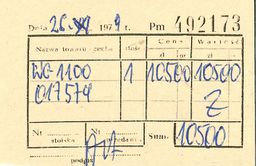 Dnia 26. XI 1979 Pm 492173
Nazwa towaru - cecha Ilość Cena Wartość
zł gr zł gr
WG-1100 1 10500 10500
017574
Z
Nr stoiska Nr sprzedawcy Suma 10500
podpis